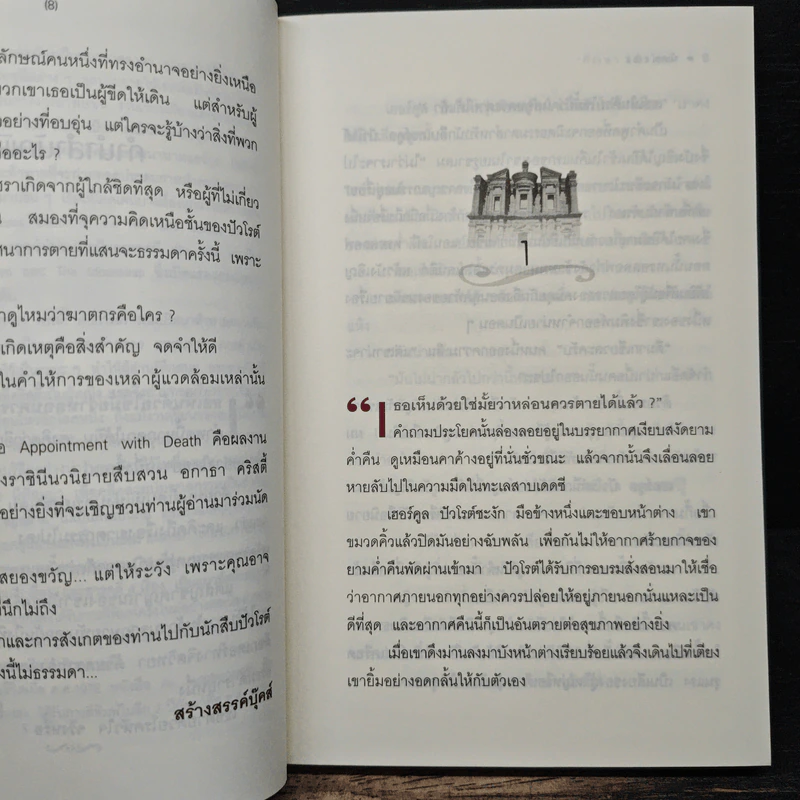 (8)
ลักษณ์คนหนึ่งที่ทรงอำนาจอย่างยิ่งเหนือ
พวกเขาเธอเป็นผู้ขีดให้เดิน แต่สำหรับผู้
อย่างที่อบอุ่น แต่ใครจะรู้บ้างว่าสิ่งที่พวก
คืออะไร ?
เกิดจากผู้ใกล้ชิดที่สุด หรือผู้ที่ไม่เกี่ยว
สมองที่จุความคิดเหนือชั้นของปัวโรต์
การตายที่แสนจะธรรมดาครั้งนี้ เพราะ
ดูไหมว่าฆาตกรคือใคร ?
เกิดเหตุคือสิ่งสำคัญ จดจำให้ดี
ในคำให้การของเหล่าผู้แวดล้อมเหล่านั้น
Appointment with Death คือผลงาน
ราชินีนวนิยายสืบสวน อกาธา คริสตี้
อย่างยิ่งที่จะเชิญชวนท่านผู้อ่านมาร่วมนัด
สยองขวัญ... แต่ให้ระวัง เพราะคุณอาจ
นึกไม่ถึง
และการสังเกตของท่านไปกับนักสืบปัวโรต์
นี้ไม่ธรรมดา...
สร้างสรรค์บุ๊คส์
1
“เธอเห็นด้วยใช่มั้ยว่าหล่อนควรตายได้แล้ว ?”
คำถามประโยคนั้นล่องลอยอยู่ในบรรยากาศเงียบสงัดยาม
ค่ำคืน ดูเหมือนคาค้างอยู่ที่นั่นชั่วขณะ แล้วจากนั้นจึงเลื่อนลอย
หายลับไปในความมืดในทะเลสาบเดดซี
เฮอร์คูล ปัวโรต์ชะงัก มือข้างหนึ่งแตะขอบหน้าต่าง เขา
ขมวดคิ้วแล้วปิดมันอย่างฉับพลัน เพื่อกันไม่ให้อากาศร้ายกาจของ
ยามค่ำคืนพัดผ่านเข้ามา ปัวโรต์ได้รับการอบรมสั่งสอนมาให้เชื่อ
ว่าอากาศภายนอกทุกอย่างควรปล่อยให้อยู่ภายนอกนั่นแหละเป็น
ดีที่สุด และอากาศคืนนี้ก็เป็นอันตรายต่อสุขภาพอย่างยิ่ง
เมื่อเขาดึงม่านลงมาบังหน้าต่างเรียบร้อยแล้วจึงเดินไปที่เตียง
เขายิ้มอย่างอดกลั้นให้กับตัวเอง